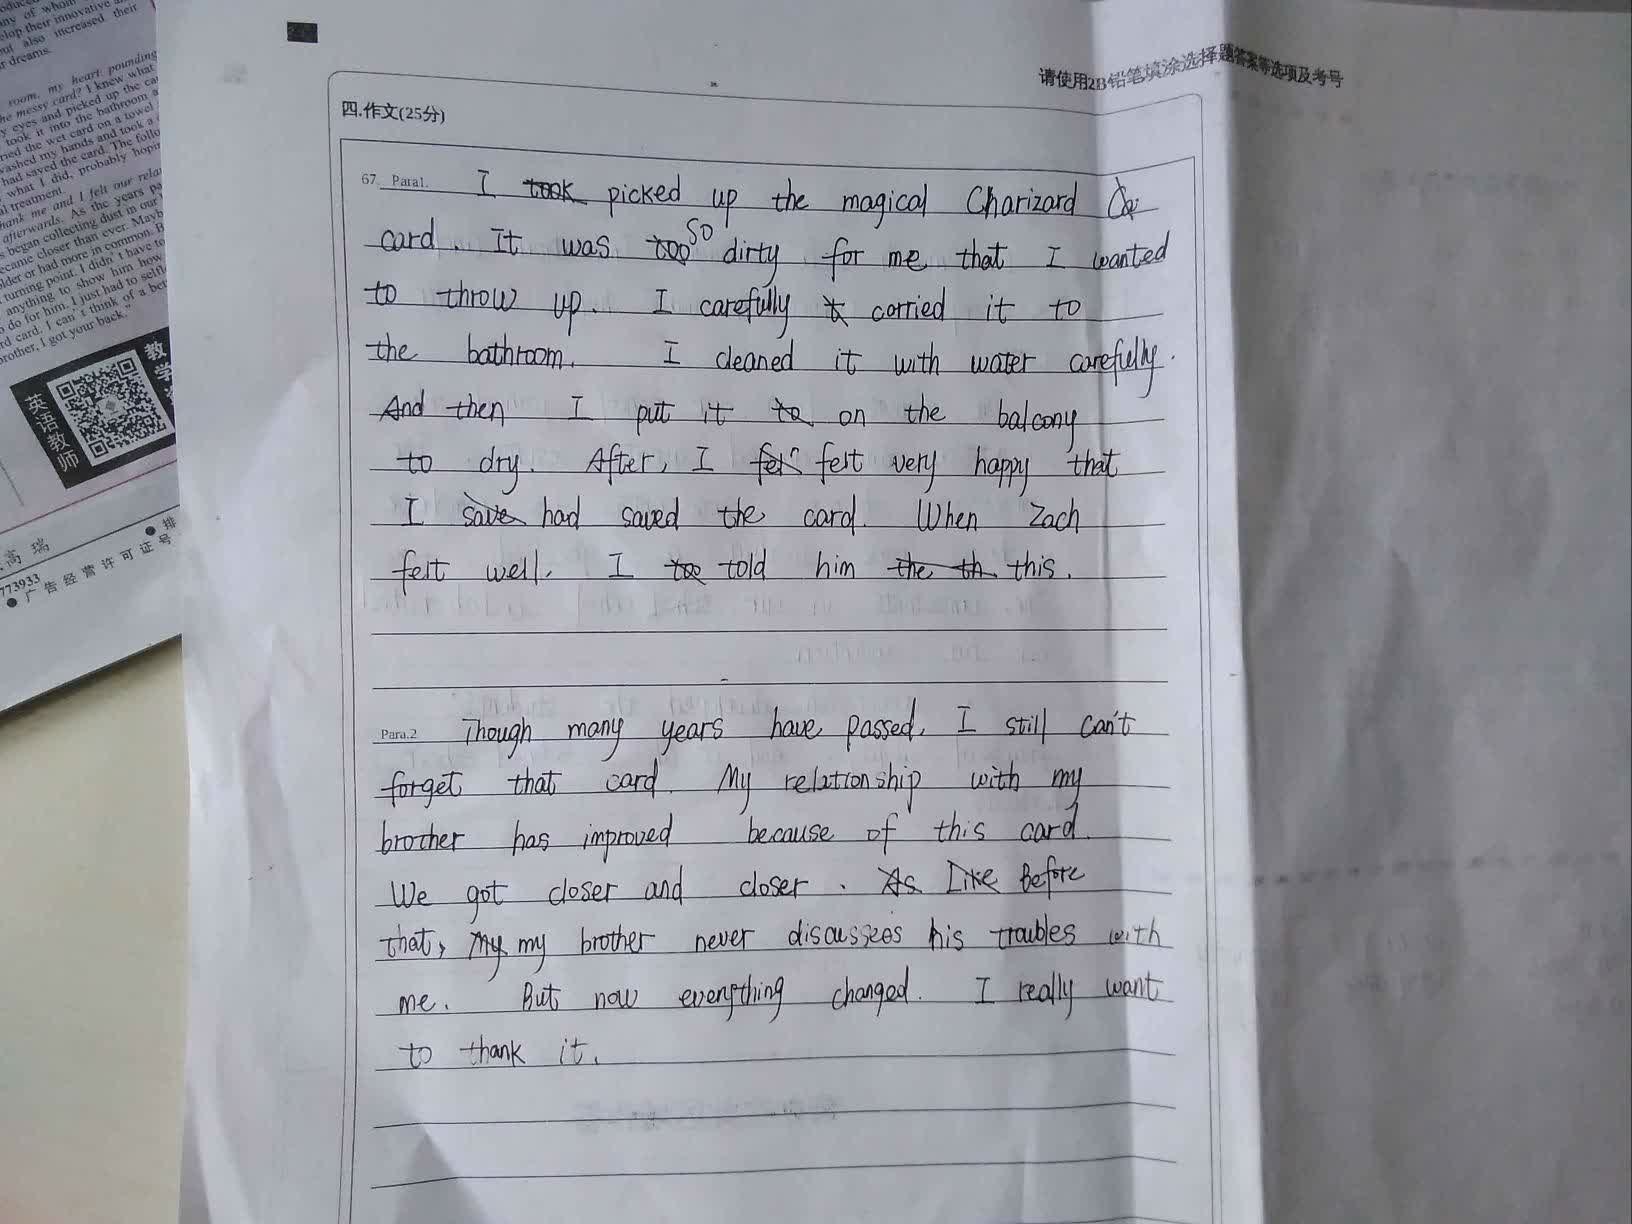 oduced
any of whom
elop their innovative a
but also increased their
r dreams.
room, my heart pounding
he messy card? I knew what
y eyes and picked up the ca
took it into the bathroom a
ried the wet card on a towel
washed my hands and took a
had saved the card. The follo
what I did, probably hopi
al treatment.
hank me and I felt our rela
afterwards. As the years pa
s began collecting dust in our
ecame closer than ever. Mayb
older or had more in common. B
turning point. I didn't have to
anything to show him how
o do for him. I just had to self
rd card. I can't think of a bet
brother, I got your back."
英语教师
教学
高 瑞
773933
●广告经营许可证号
●排
请使用2B铅笔填涂选择题答案等选项及考号
四.作文(25分)
67. Para1. I took picked up the magical Charizard Ca
card. It was too so dirty for me that I wanted
to throw up. I carefully t carried it to
the bathroom. I cleaned it with water carefully.
And then I put it to on the balcony
to dry. After, I fel felt very happy that
I save had saved the card. When Zach
felt well. I too told him the th this.
Para.2 Though many years have passed, I still can't
forget that card. My relationship with my
brother has improved because of this card.
We got closer and closer. As Like Before
that, My my brother never discusses his troubles with
me. But now everything changed. I really want
to thank it.